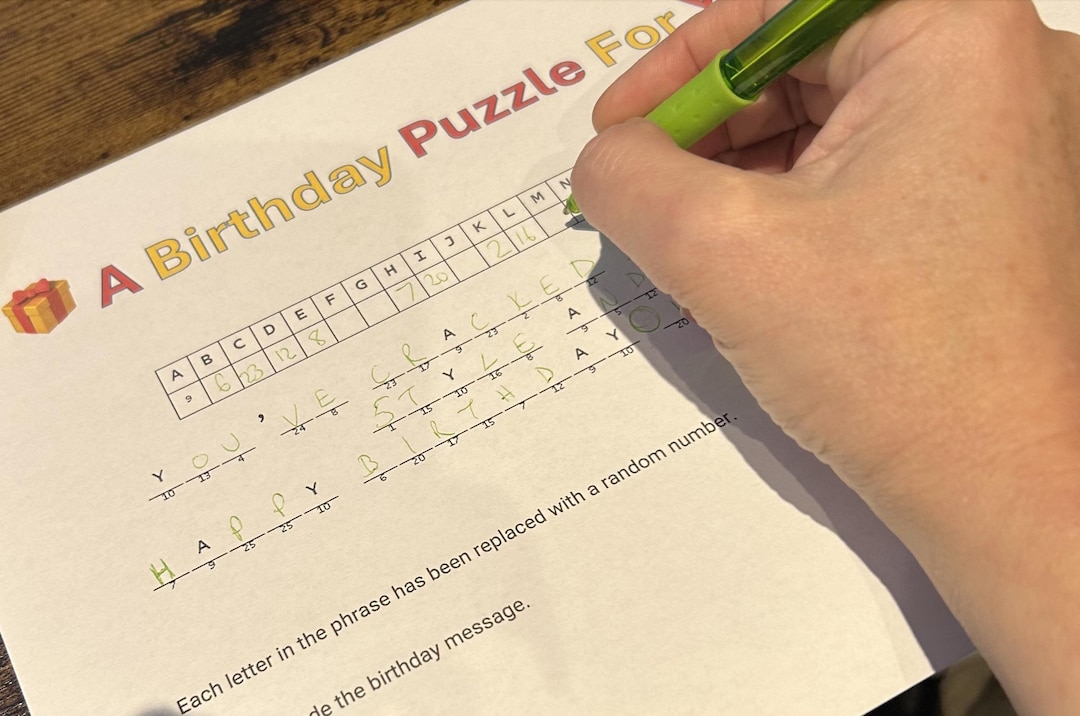 A Birthday Puzzle For
A B C D E F G H I J K L M N
9 6 23 12 8 7 20 2 16
Y O U ' V E C R A C K E D
10 13 4 24 8 23 17 9 23 2 8 12
S T Y L E A N D
1 15 10 16 8 9 5 12
H A P P Y B I R T H D A Y
7 9 25 25 10 6 20 17 15 7 12 9 10
20
Each letter in the phrase has been replaced with a random number.
de the birthday message.